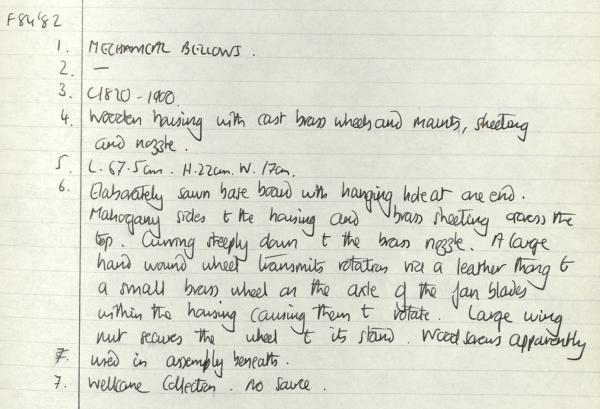 F84'82
1. MECHANICAL BELLOWS.
2. —
3. C1820-1900.
4. Wooden housing with cast brass wheels and mounts, sheeting
and nozzle.
5. L. 67.5cm. H. 22cm. W. 17cm.
6. Elaborately sawn base board with hanging hole at one end.
Mahogany sides to the housing and brass sheeting across the
top. Curving steeply down to the brass nozzle. A large
hand wound wheel transmits rotation via a leather thong to
a small brass wheel on the axle of the fan blades
within the housing causing them to rotate. Large wing
nut secures the wheel to its stand. Wood screws apparently
7. used in assembly beneath.
7. Wellcome Collection. No source.